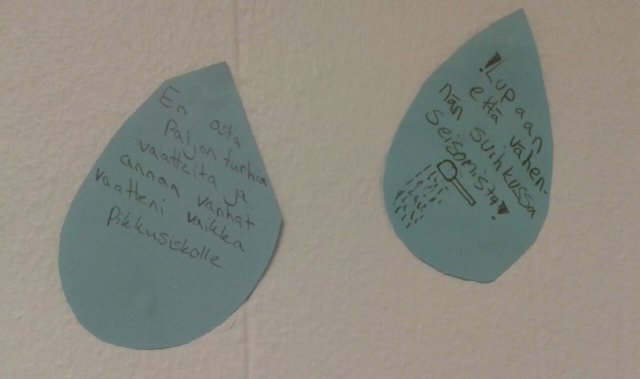 En osta
Paljon turhia
vaatteita ja
annan vanhat
vaatteni vaikka
Pikkusiskolle
!Lupaan
että vähen-
nän suihkussa
seisomista!